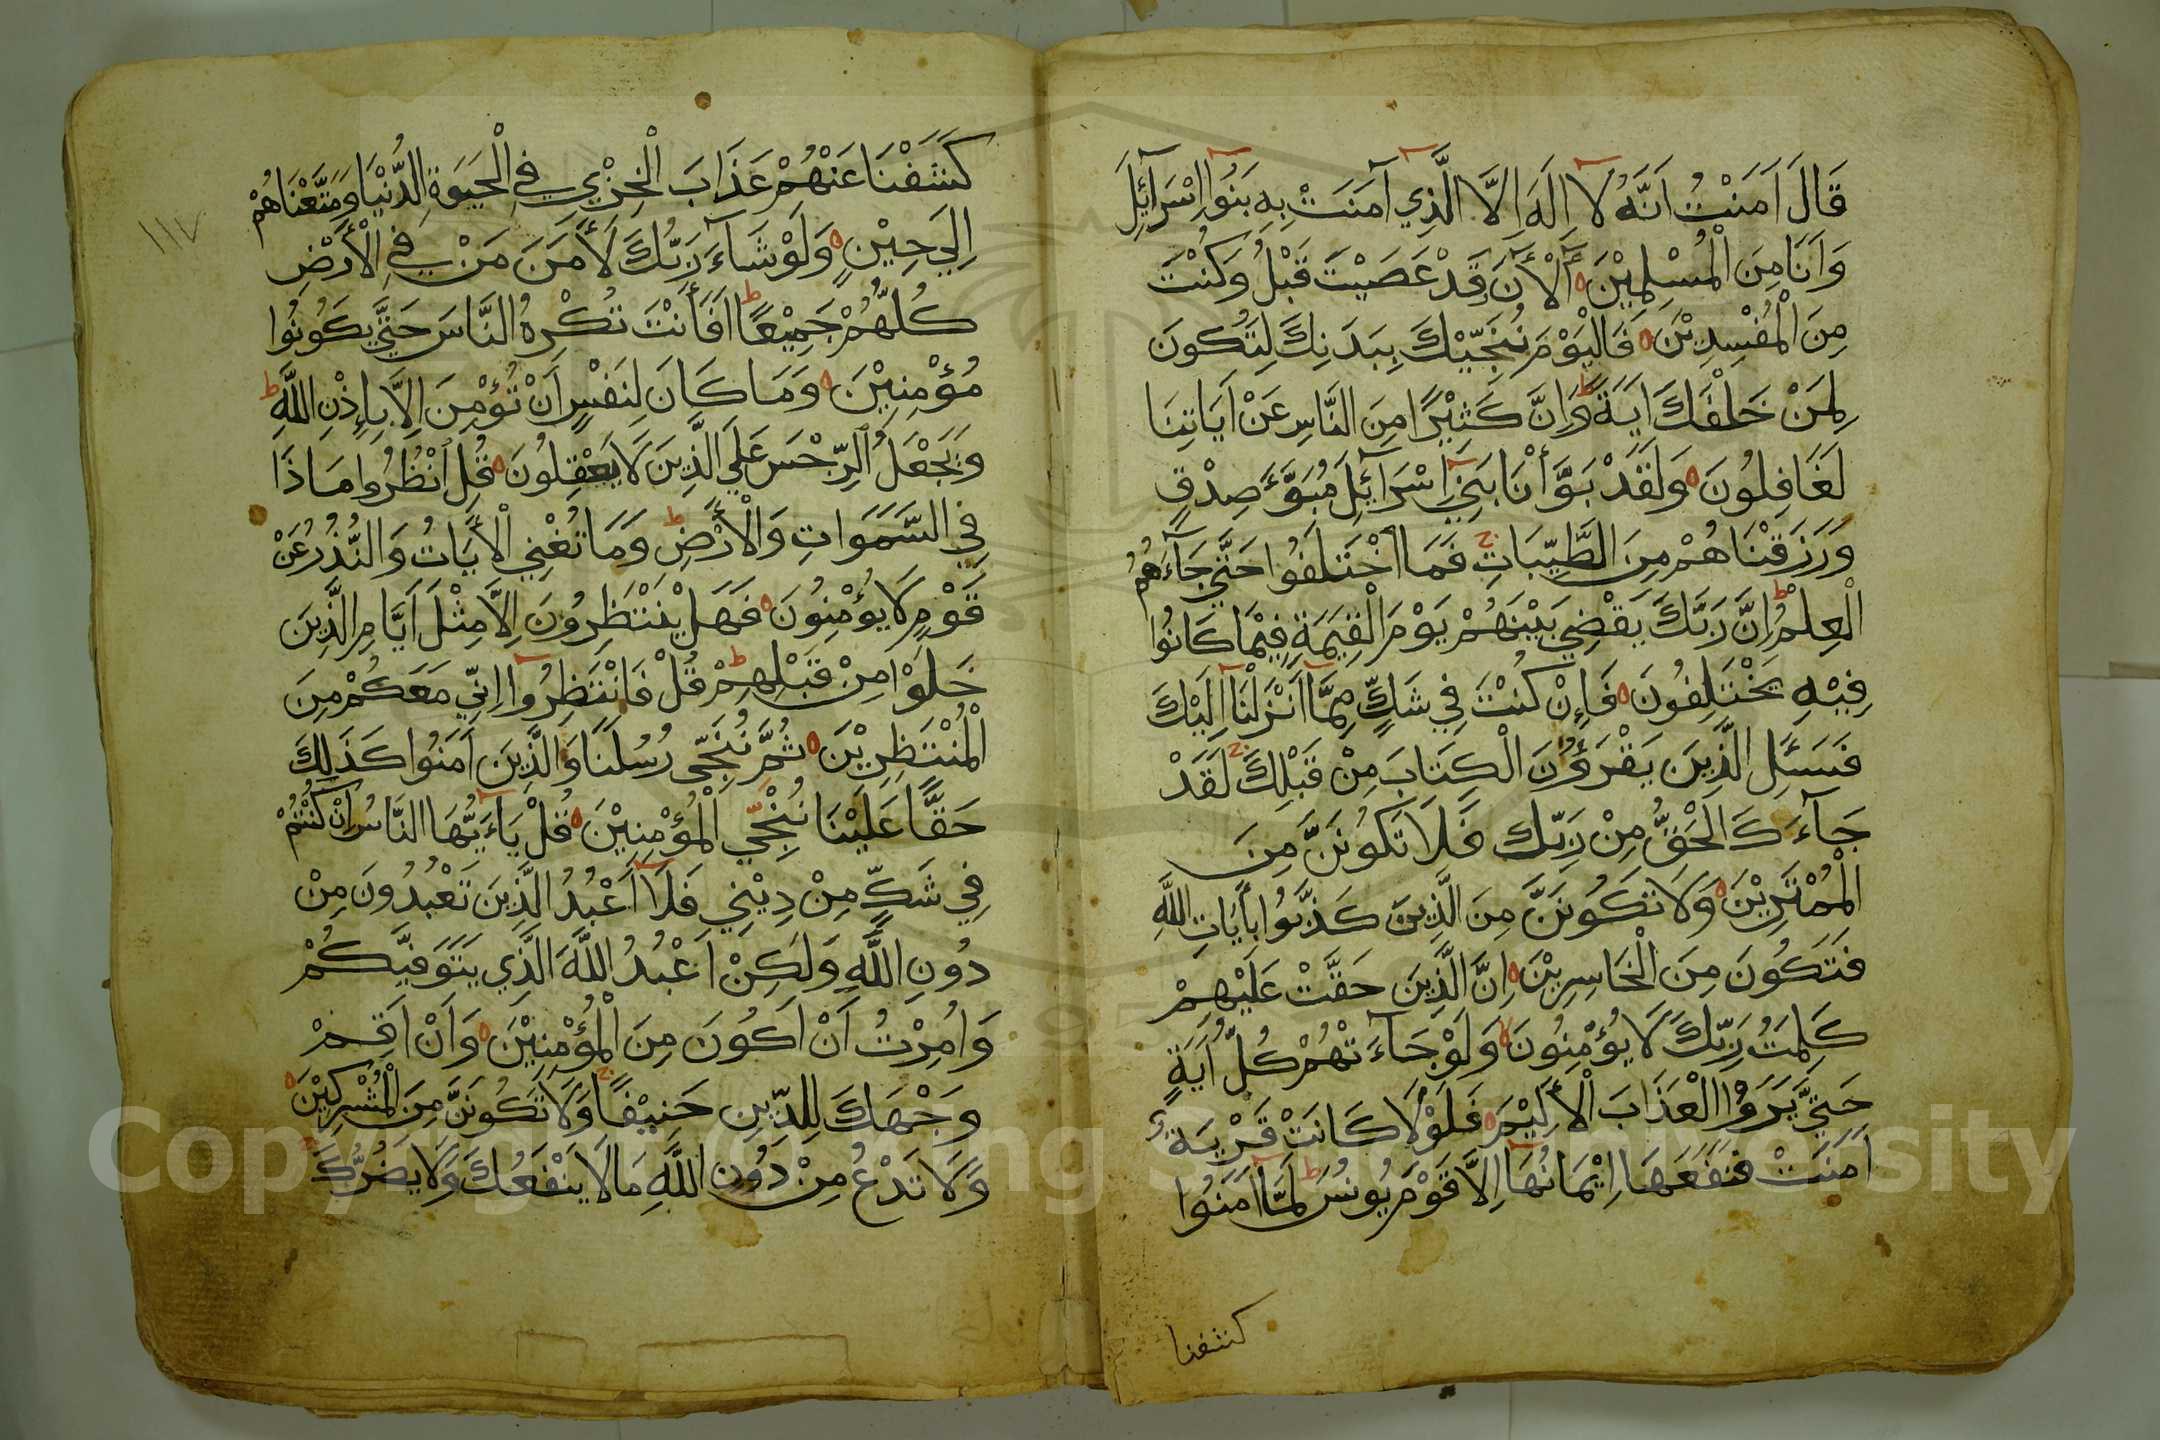 قَالَ اَمَنْتُ اَنَّهُ لَا اِلَهَ اِلَّا الَّذِي آمَنَتْ بِهِ بَنُوا اِسْرَآئِلَ
وَاَنَا مِنَ الْمُسْلِمِيْنَ آَلْأَنَ وَقَدْ عَصَيْتَ قَبْلُ وَكُنْتَ
مِنَ الْمُفْسِدِيْنَ فَالْيَوْمَ نُنَجِّيْكَ بِبَدَنِكَ لِتَكُونَ
لِمَنْ خَلْفَكَ اَيَةً ط وَاِنَّ كَثِيْرًا مِنَ النَّاسِ عَنْ اَيَاتِنَا
لَغَافِلُونَ وَلَقَدْ بَوَّأْنَا بَنِي اِسْرَآئِلَ مُبَوَّءَ صِدْقٍ
وَرَزَقْنَاهُمْ مِنَ الطَّيِّبَاتِ ج فَمَا اخْتَلَفُوا حَتَّي جَآءَهُمُ
الْعِلْمُ ط اِنَّ رَبَّكَ يَقْضِي بَيْنَهُمْ يَوْمَ الْقِيَمَةِ فِيْمَا كَانُوا
فِيْهِ يَخْتَلِفُونَ فَاِنْ كُنْتَ فِي شَكٍّ مِمَّا اَنْزَلْنَا اِلَيْكَ
فَسْئَلِ الَّذِيْنَ يَقْرَؤُنَ الْكِتَابَ مِنْ قَبْلِكَ ج لَقَدْ
جَآءَكَ الْحَقُّ مِنْ رَبِّكَ فَلَا تَكُونَنَّ مِنَ
الْمُمْتَرِيْنَ وَلَا تَكُونَنَّ مِنَ الَّذِيْنَ كَذَّبُوا بِأَيَاتِ اللَّهِ
فَتَكُونَ مِنَ الْخَاسِرِيْنَ اِنَّ الَّذِيْنَ حَقَّتْ عَلَيْهِمْ
كَلِمَتُ رَبِّكَ لَا يُؤْمِنُونَ لا وَلَوْ جَآءَتْهُمْ كُلُّ اَيَةٍ
حَتَّي يَرَوُا الْعَذَابَ الْأَلِيْمَ فَلَوْلَا كَانَتْ قَرْيَةٌ
اَمَنَتْ فَنَفَعَهَا اِيْمَانُهَا اِلَّا قَوْمَ يُونُسَ ط لَمَّا اَمَنُوا
كشفنا
١١٧
كَشَفْنَا عَنْهُمْ عَذَابَ الْخِزْيِ فِي الْحَيَوةِ الدُّنْيَا وَمَتَّعْنَاهُمْ
اِلَي حِيْنٍ وَلَوْ شَآءَ رَبُّكَ لَأَمَنَ مَنْ فِي الْأَرْضِ
كُلُّهُمْ جَمِيْعًا ط اَفَأَنْتَ تُكْرِهُ النَّاسَ حَتَّي يَكُونُوا
مُؤْمِنِيْنَ وَمَا كَانَ لِنَفْسٍ اَنْ تُؤْمِنَ اِلَّا بِاِذْنِ اللَّهِ ط
وَيَجْعَلُ الرِّجْسَ عَلَي الَّذِيْنَ لَا يَعْقِلُونَ قُلِ انْظُرُوا مَاذَا
فِي السَّمَوَاتِ وَالْأَرْضِ ط وَمَا تُغْنِي الْأَيَاتُ وَالنُّذُرُ عَنْ
قَوْمٍ لَا يُؤْمِنُونَ فَهَلْ يَنْتَظِرُونَ اِلَّا مِثْلَ اَيَّامِ الَّذِيْنَ
خَلَوْا مِنْ قَبْلِهِمْ ط قُلْ فَانْتَظِرُوا اِنِّي مَعَكُمْ مِنَ
الْمُنْتَظِرِيْنَ ثُمَّ نُنَجِّي رُسُلَنَا وَالَّذِيْنَ اَمَنُوا كَذَلِكَ
حَقًّا عَلَيْنَا نُنْجِّي الْمُؤْمِنِيْنَ قُلْ يَاءَيُّهَا النَّاسُ اِنْ كُنْتُمْ
فِي شَكٍّ مِنْ دِيْنِي فَلَا اَعْبُدُ الَّذِيْنَ تَعْبُدُونَ مِنْ
دُونِ اللَّهِ وَلَكِنْ اَعْبُدُ اللَّهَ الَّذِي يَتَوَفَّيكُمْ
وَاُمِرْتُ اَنْ اَكُونَ مِنَ الْمُؤْمِنِيْنَ وَاَنْ اَقِمْ
وَجْهَكَ لِلدِّيْنِ حَنِيْفًا ج وَلَا تَكُونَنَّ مِنَ الْمُشْرِكِيْنَ
وَلَا تَدْعُ مِنْ دُونِ اللَّهِ مَا لَا يَنْفَعُكَ وَلَا يَضُرُّكَ ج
Copyright © King Saud University